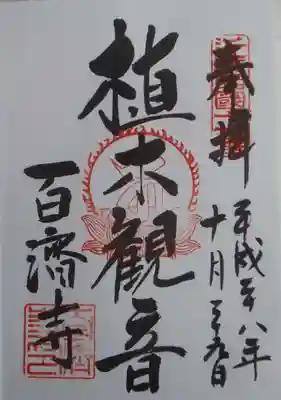 奉拝
平成二十八年
十月二十九日
植木観音
百済寺